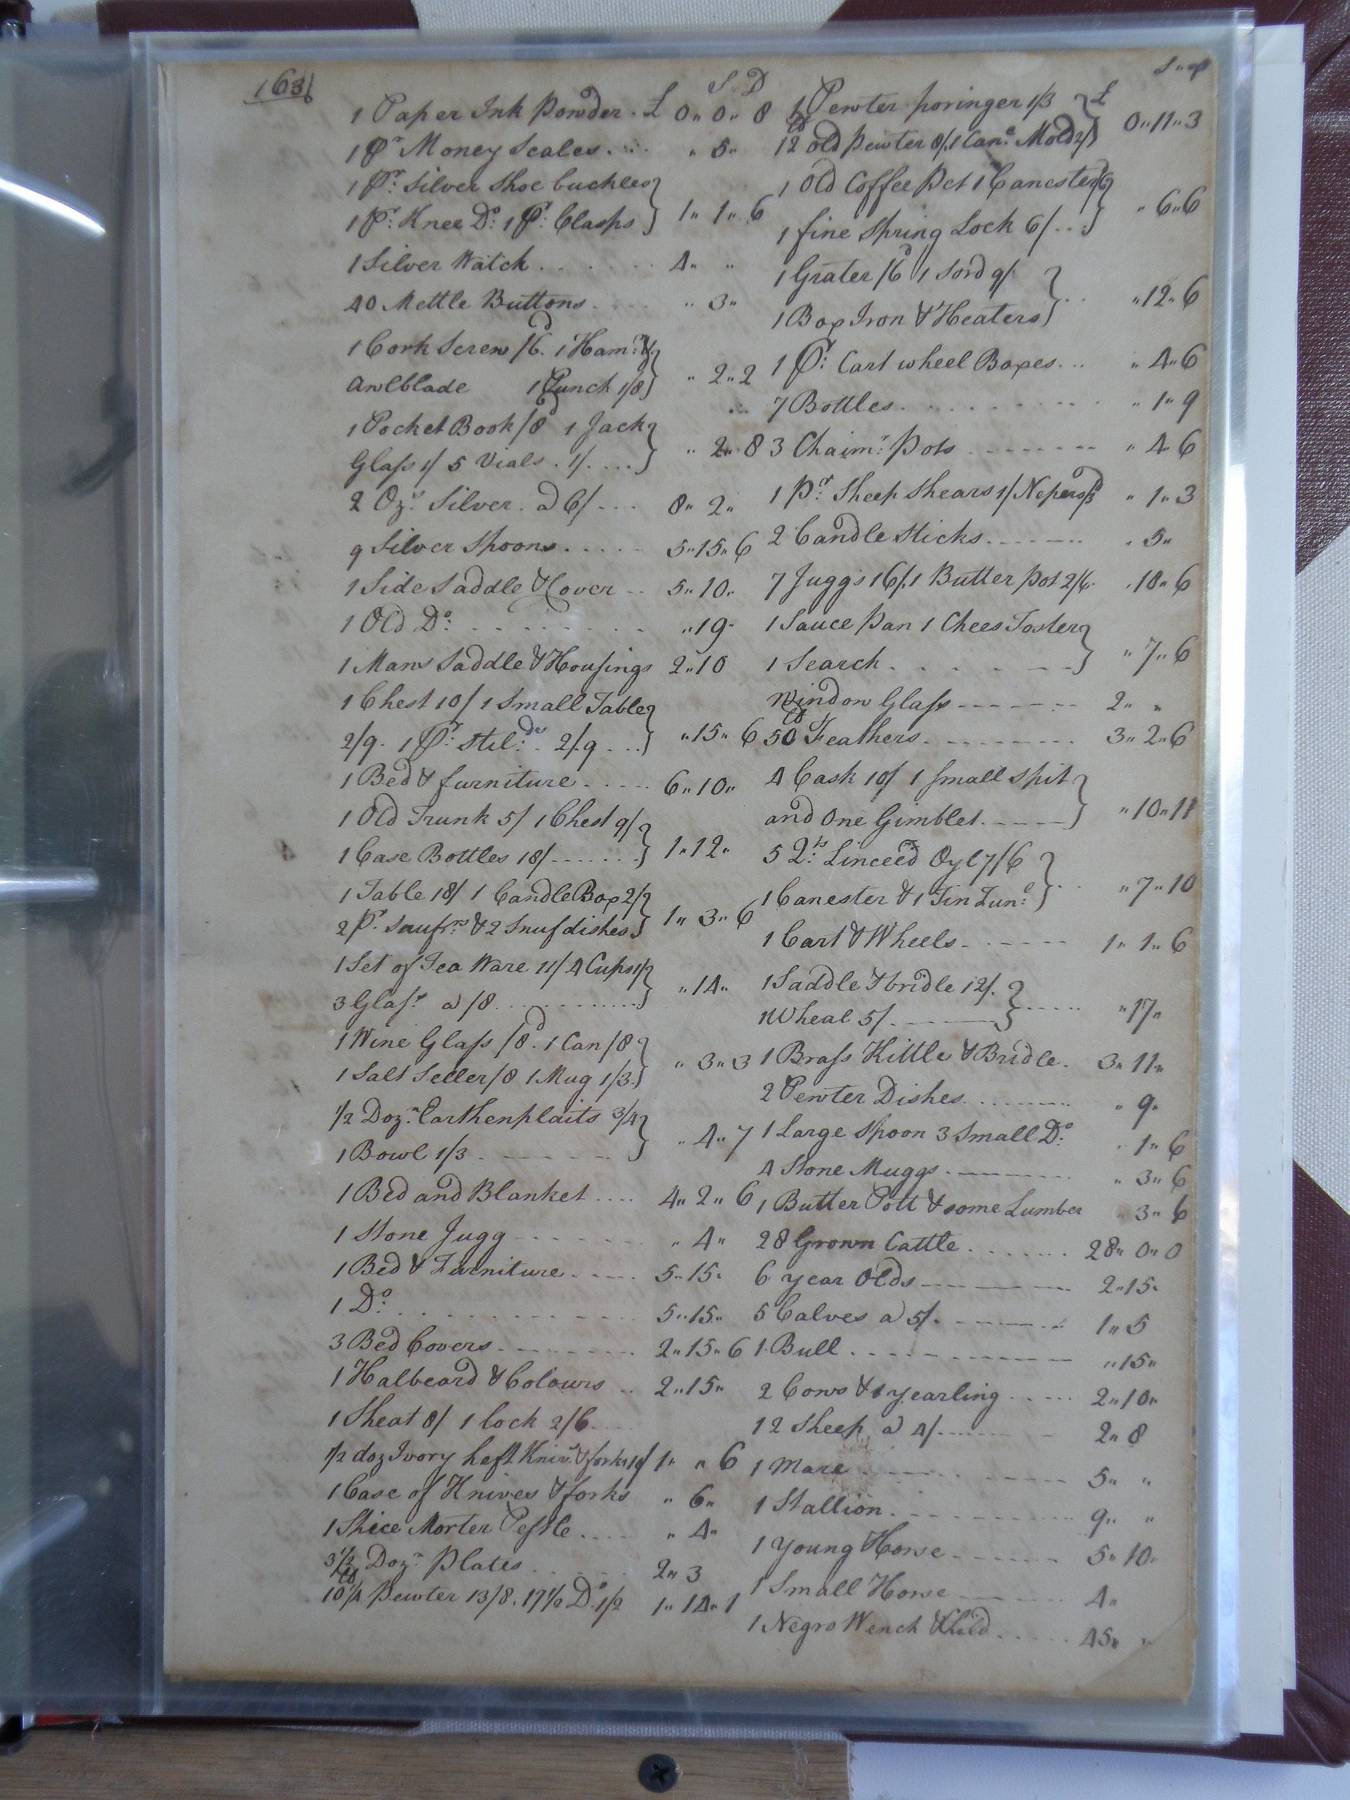 163
S D
1 Paper Ink Powder . £ 0" 0" 8
1 Pr Money Scales . . . " 5"
1 Pr: Silver Shoe buckles
1 Pr: Knee Do: 1 Pr: Clasps } 1" 1" 6
1 Silver Watch . . . . . . 4" "
40 Mettle Buttons . . . . " 3"
1 Cork Screw /6d. 1 Hamr:
awlblade 1 Punch 1/8 } " 2" 2
1 Pocket Book /8d 1 Jack
Glass 1/ 5 Vials . 1/. . . . } " 2" 8
2 Ozs: Silver . a 6/ . . . 8" 2"
9 Silver Spoons . . . . . 5" 15" 6
1 Side Saddle & Cover . . 5" 10"
1 Old Do: . . . . . . . . "19"
1 Mans Saddle & Housings 2" 10
1 Chest 10/ 1 Small Table
2/9. 1 Pr: Stil:ds. 2/9 . . . } "15" 6
1 Bed & furniture . . . . . 6" 10"
1 Old Trunk 5/ 1 Chest 9/
1 Case Bottles 18/ . . . . . . } 1" 12"
1 Table 18/ 1 Candle Box 2/
2 Pr. Snufrs & 2 Snuf dishes } 1" 3" 6
1 Set of Tea Ware 11/ 4 Cups 1/
3 Glass a /8 . . . . . . . . } "14"
1 Wine Glass /8d. 1 Can /8
1 Salt Seller /8 1 Mug 1/3. } " 3" 3
1/2 Dozn Earthen plaits 3/4
1 Bowl 1/3 . . . . . . . } " 4" 7
1 Bed and Blanket . . . . 4" 2" 6
1 Stone Jugg . . . . . . . " 4"
1 Bed & Furniture . . . . . 5" 15"
1 Do: . . . . . . . . . 5" 15"
3 Bed Covers . . . . . . . 2" 15" 6
1 Halbeard & Colours . . 2" 15"
1 Sheat 8/ 1 lock 2/6 . . .
1/2 doz Ivory haft Knivs & forks 10/ 1" " 6
1 Case of Knives & forks " 6"
1 Spice Morter Pestle . . . . " 4"
3 1/2 Dozn Plates . . . . . . 2" 3
10 1/4 lb Pewter 13/8. 17 1/2 Do. 1/2 1" 14" 1
1 Pewter poringer 1/3
12 lb old Pewter 8/. 1 Cane. Mold 2/ } £ 0" 11" 3
1 Old Coffee Pot 1 Canester
1 fine Spring Lock 6/ . . . } " 6" 6
1 Grater /6d 1 Sord 9/
1 Box Iron & Heaters } . . "12" 6
1 Pr: Cart wheel Boxes . . . " 4" 6
7 Bottles . . . . . . . . . " 1" 9
3 Chaimr: Pots . . . . . . . " 4" 6
1 Pr: Sheep Shears 1/ " 1" 3
2 Candle Sticks . . . . . . . " 5"
7 Juggs 16/. 1 Butter Pot 2/6 . "18" 6
1 Sauce Pan 1 Chees Toster
1 Search . . . . . . . . } " 7" 6
Window Glass . . . . . . . 2" "
50 lb Feathers . . . . . . . . 3" 2" 6
4 Cask 10/ 1 Small Spit
and One Gimblet . . . . . } "10" 11
5 Qts: Linceed Oyl 7/6
1 Canester & 1 Tin Tune: } . . " 7" 10
1 Cart & Wheels . . . . . . 1" 1" 6
1 Saddle & bridle 12/.
1 Wheal 5/ . . . . . . } . . . . "17"
1 Brass Kittle & Bridle . 3" 11"
2 Pewter Dishes . . . . . . . " 9"
1 Large Spoon 3 Small Do: " 1" 6
4 Stone Muggs . . . . . . . . " 3" 6
1 Butter Pott & some Lumber " 3" 6
28 Grown Cattle . . . . . . 28" 0" 0
6 year Olds . . . . . . . . 2" 15"
5 Calves a 5/. . . . . . . . 1" 5
1 Bull . . . . . . . . . . . "15"
2 Cows & 1 yearling . . . . . 2" 10"
12 Sheep a 4/. . . . . . . 2" 8
1 Mare . . . . . . . . . 5" "
1 Stallion . . . . . . . . . . 9" "
1 Young Horse . . . . . . . 5" 10"
1 Small Horse . . . . . . . 4"
1 Negro Wench & Child . . . . . 45" "